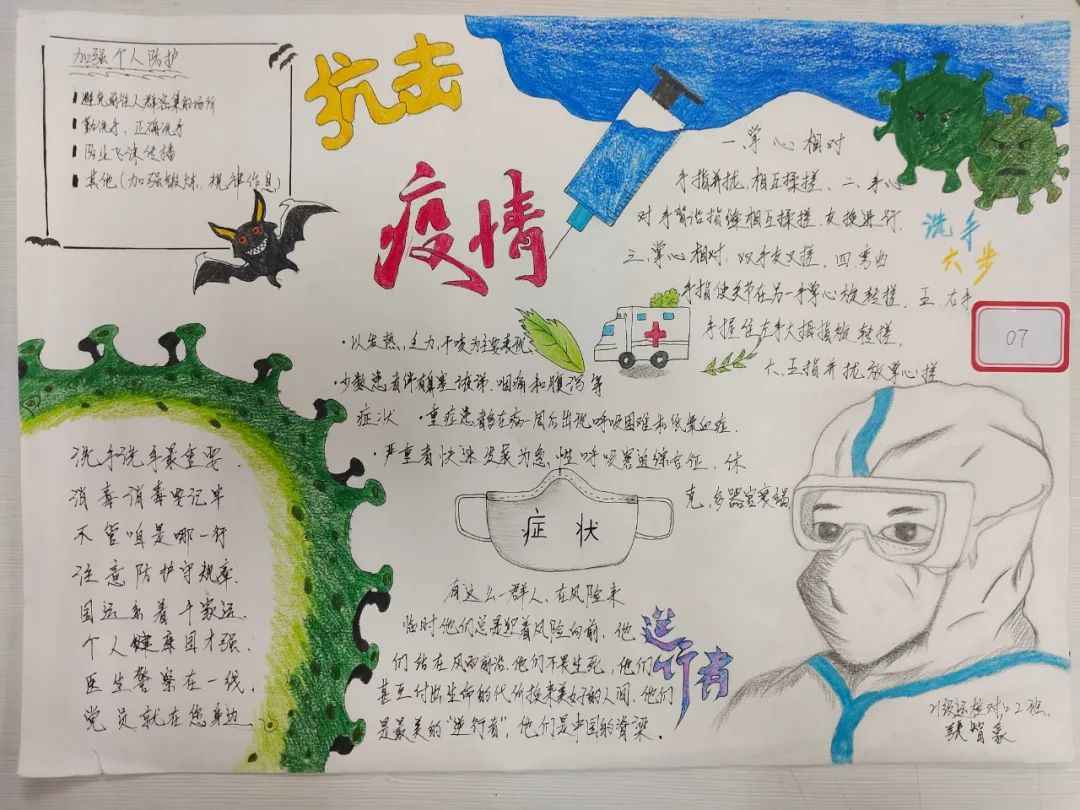 加强个人防护
避免前往人群密集的场所
勤洗手，正确洗手
防止飞沫传播
其他（加强锻炼，规律作息）
抗击
疫情
一、掌心相对
手指并拢，相互揉搓、二、手心
对手背沿指缝相互揉搓，交换进行.
三、掌心相对，双手交叉搓，四弯曲
手指使关节在另一手掌心旋转搓、五、右手
手握住左手大拇指旋转搓，
六、五指并拢放掌心搓
洗手
六步
07
·以发热，乏力，干咳为主要表现、
·少数患者伴有鼻塞流涕，咽痛和腹泻等
症状 ·重症患者多在病一周后出现呼吸困难和低氧血症.
·严重者快速发展为急性呼吸窘迫综合征，休
克，多器官衰竭
症状
洗手洗手最重要.
消毒消毒要记牢
不管咱是哪一行
注意防护守规矩.
国运系着千家运.
个人健康国才强.
医生警察在一线，
党员就在您身边.
有这么一群人，在风险来
临时他们总是迎着风险向前，他
们站在风雨前沿，他们不畏生死，他们
甚至付出生命的代价换来美好的人间，他们
是最美的"逆行者"，他们是中国的脊梁.
逆行者
2班